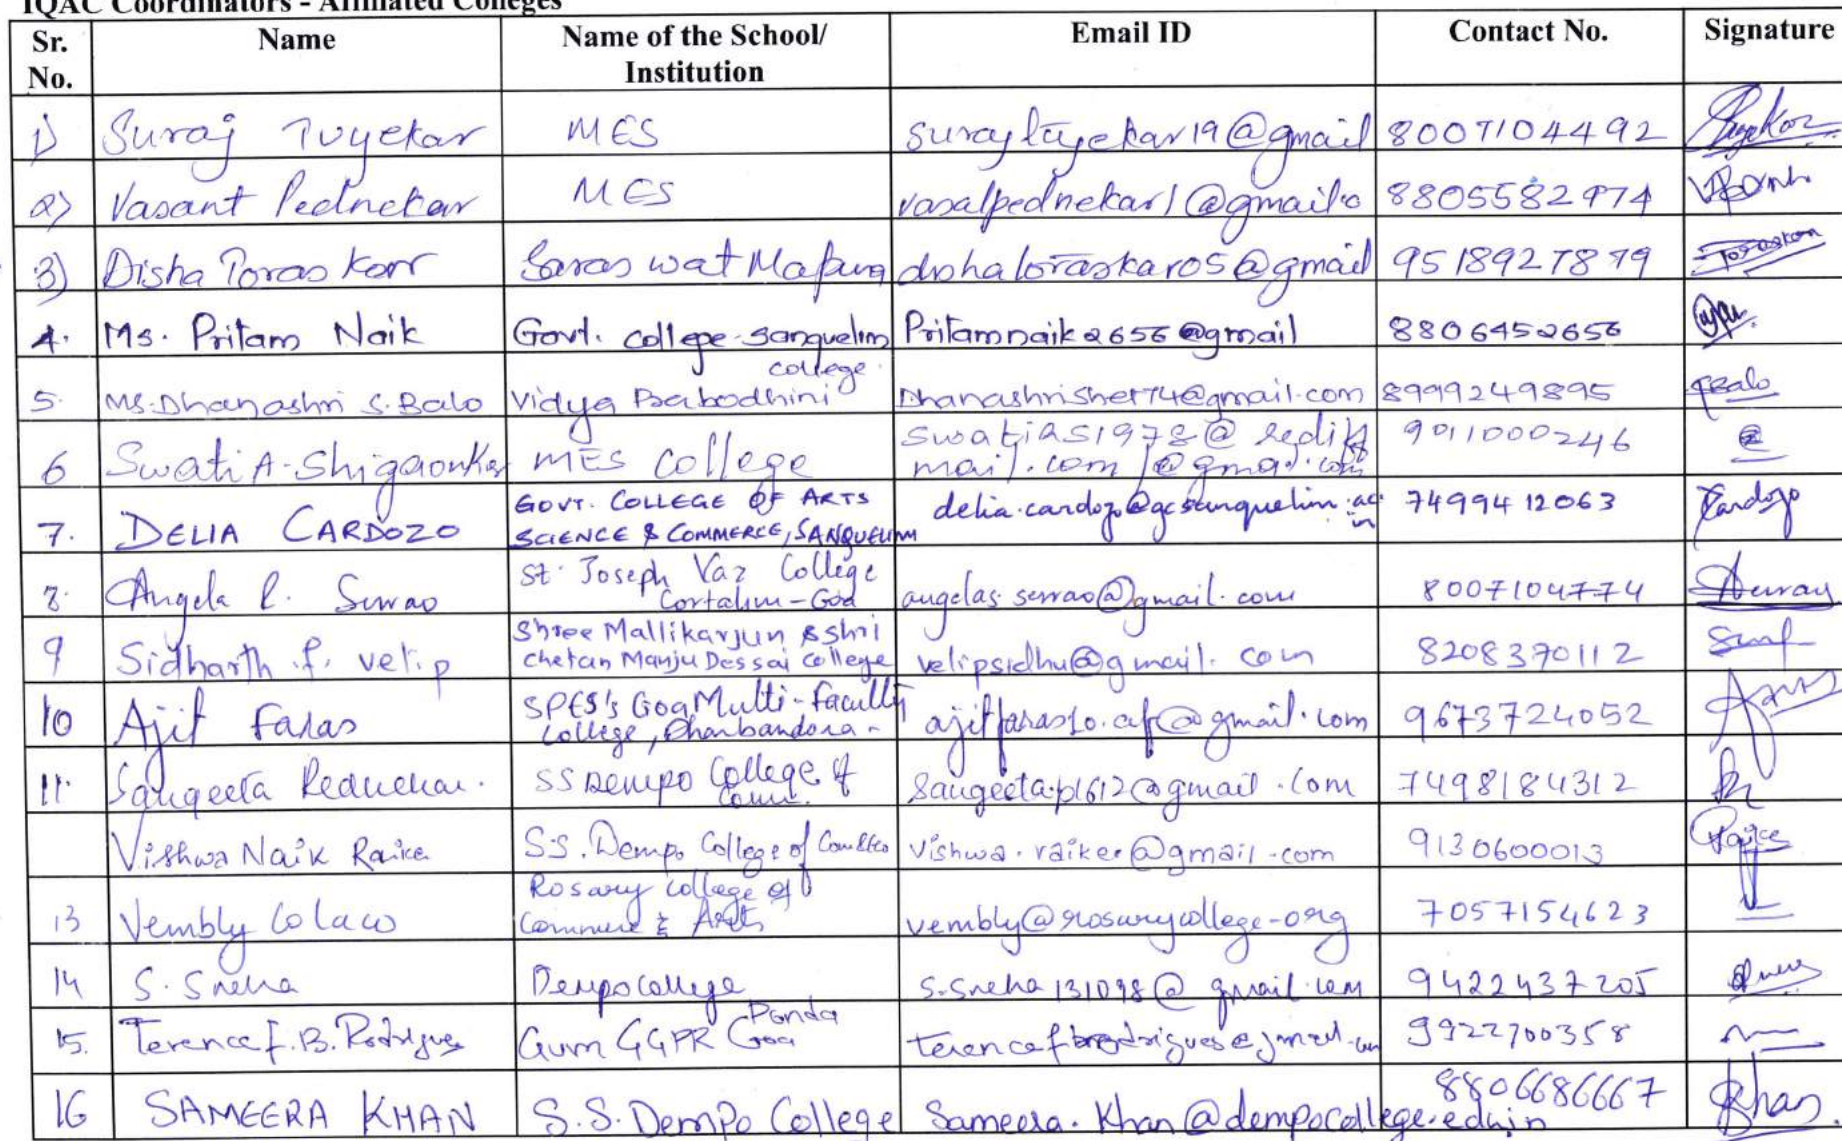 IQAC Coordinators - Affiliated Colleges
Sr. No. Name Name of the School/ Institution Email ID Contact No. Signature
1) Suraj Tuyekar MES surajtuyekar19@gmail 8007104492
2) Vasant Pednekar MES vasalpednekar1@gmail 8805582974
3) Disha Toraskar Saraswat Mapusa dishatoraskar05@gmail 9518927879 Toraskar
4. Ms. Pritam Naik Govt. college sanquelim Pritamnaik2656@gmail 8806452656
5. Ms. Dhanashri S. Balo Vidya Prabodhini college Dhanashrishet74@gmail.com 8999249895 Balo
6 Swati A. Shigaonkar MES college swatias1978@rediff mail.com /@gmail.com 9011000246
7. DELIA CARDOZO GOVT. COLLEGE OF ARTS SCIENCE & COMMERCE, SANQUELIM delia.cardozo@gcsanquelim.ac.in 7499412063 Cardozo
8. Angela C. Serrao St. Joseph Vaz College Cortalim - Goa angelas.serrao@gmail.com 8007104774
9 Sidharth P. velip Shree Mallikarjun & shri chetan Manju Dessai College velipsidhu@gmail.com 8208370112
10 Ajit Faras SPES's Goa Multi-faculty College, Dharbandora - 9673724052
11. Sangeeta Pednekar. SS Dempo College of Comm. Sangeeta.p1612@gmail.com 7498184312
Vishwa Naik Raiker S.S. Dempo College of vishwa.raiker@gmail.com 9130600013
13 Vembly Colaco Rosary College of Commerce & Arts vembly@rosarycollege-org 7057154623
14 S. Sneha Dempo College s.sneha131098@gmail.com 9422437205
15. Terence F. B. Rodrigues Gvm GGPR Ponda Goa 9922700358
16 SAMEERA KHAN S.S. Dempo College Sameera.Khan@dempocollege.edu.in 8806686667 Khan